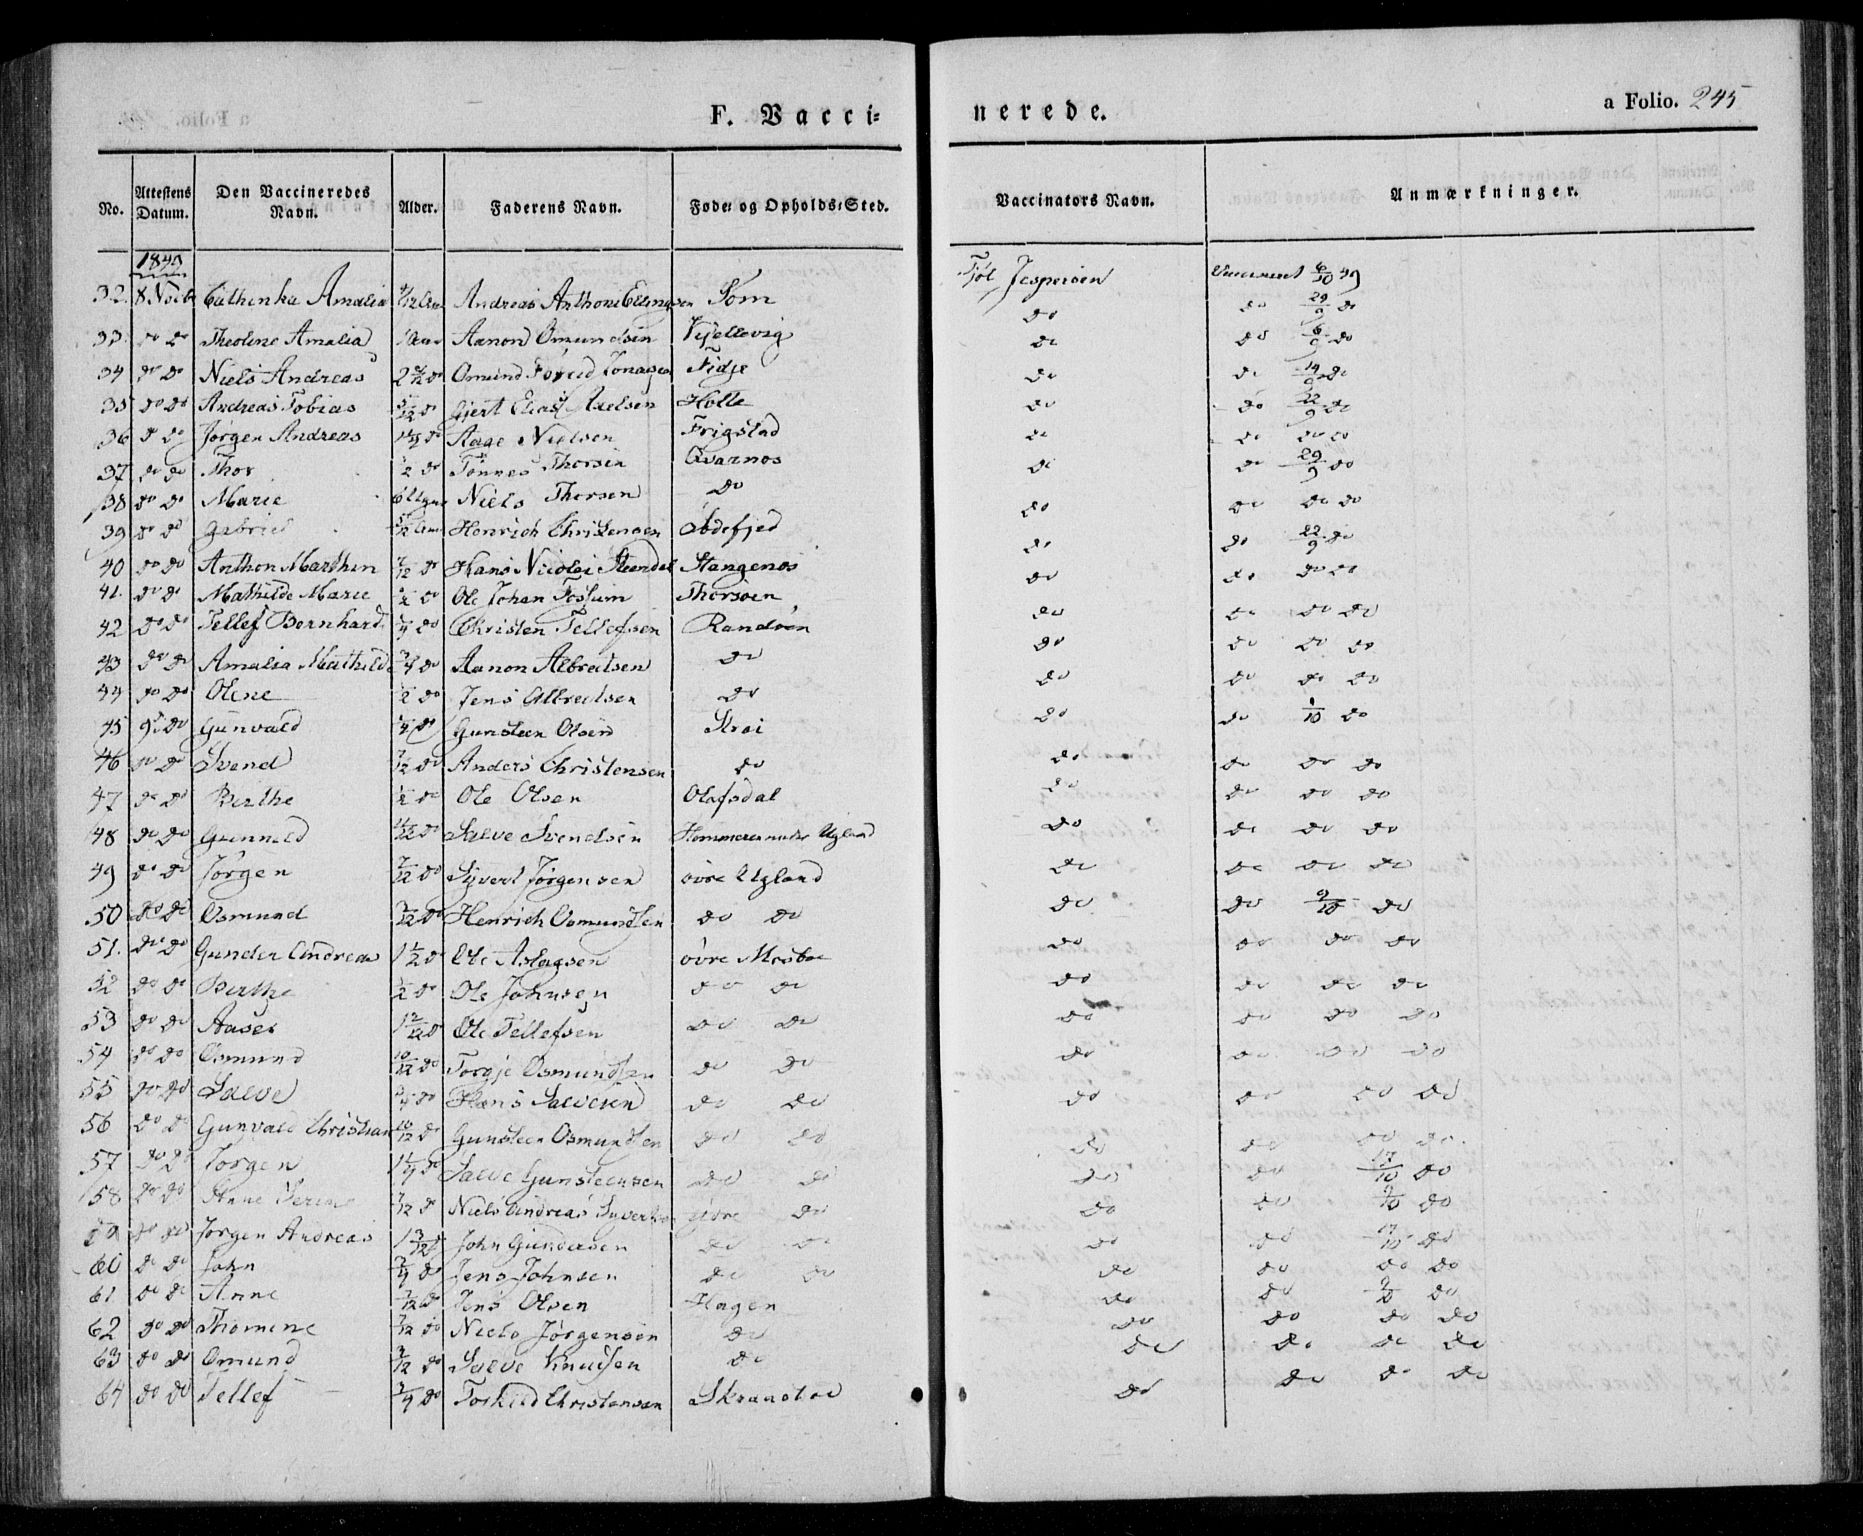 F. Vacci=
nerede.
a Folio. 245
No. | Attestens Datum. | Den Vaccineredes Navn. | Alder. | Faderens Navn. | Føde- og Opholds-Sted. | Vaccinators Navn. | Anmærkninger.
1849
32. 8 Novbr Cathinka Amalia Andreas Anthon Ellingsen Som Jespersen 6/10 49
33. do do Theoline Amalia 1 Aar Aanon Omundsen Vejellevig do do 29/9 do
34 do do Niels Andreas do Omund Fidje do do 6/9 do
35 do do Andreas Tobias 5/12 do Gjert Elias Axelsen Holte do do 19/9 do
36 do do Jørgen Andreas do Aage Nielsen Frigstad do do 22/9 do
37. do do Thor 1/2 do Tønnes Thorsen Qvarnes do do do do
38 do do Marie Niels Thorsen do do do 29/9 do
39 do do Gabriel Henrich Christensen Ødefjed do do do do
40 do do Anthon Marthin 7/12 do Hans Nicolai Stangenes do do 22/9 do
41. do do Mathilde Marie 1/2 do Ole Johan Fossum Thorsøen do do do do
42 do do Tellef Bernhard do Christen Tellefsen Randøen do do do do
43 do do Amalia Mathilde 3/4 do Aanon Albretsen do do do do do
44 do do Olene 1/2 do Jens Albretsen do do do do do
45 9. do Gunvald 1/4 do Gunsteen Olsen Strai do do 1/10 do
46 do do Svend 7/12 do Anders Christensen do do do do do
47 do do Berthe 1/2 do Ole Olsen Olafsdal do do do do
48 do do Gunnuld 11/12 do Salve Svendsen Ugland do do do do
49 do do Jørgen 7/12 do Syvert Jørgensen øvre Ugland do do do do
50 do do Osmund do Henrich Osmundsen do do do do 9/10 do
51. do do Gunder Andreas 1 1/2 do Ole Aslagsen øvre Mosbøe do do do do
52 do do Berthe 1/2 do Ole Johnsen do do do do do do
53 do do Aasel do Ole Tellefsen do do do do do do
54 do do Osmund 10/12 do Torgje Osmundsen do do do do do do
55 do do Salve 3/4 do Hans Salvesen do do do do do do
56 do do Gunvald Christian 10/12 do Gunsteen Osmundsen do do do do do do
57 do do Jørgen 1 1/4 do Salve Gunsteensen do do do do 17/10 do
58 do do Anne Serine 7/12 do Niels Andreas Syvertsen do do do 9/10 do
59 do do Jørgen Andreas do John Gundersen do do do do 17/10 do
60 do do John 3/4 do Jens Johnsen do do do do do do
61 do do Anne 7/12 do Jens Olsen Hagen do do 9/10 do
62 do do Thomine 7/12 do Niels Jørgensen do do do do do
63 do do Omund do Salve Knudsen do do do do do
64 do do Tellef 3/4 do Toskild Christensen do do do do